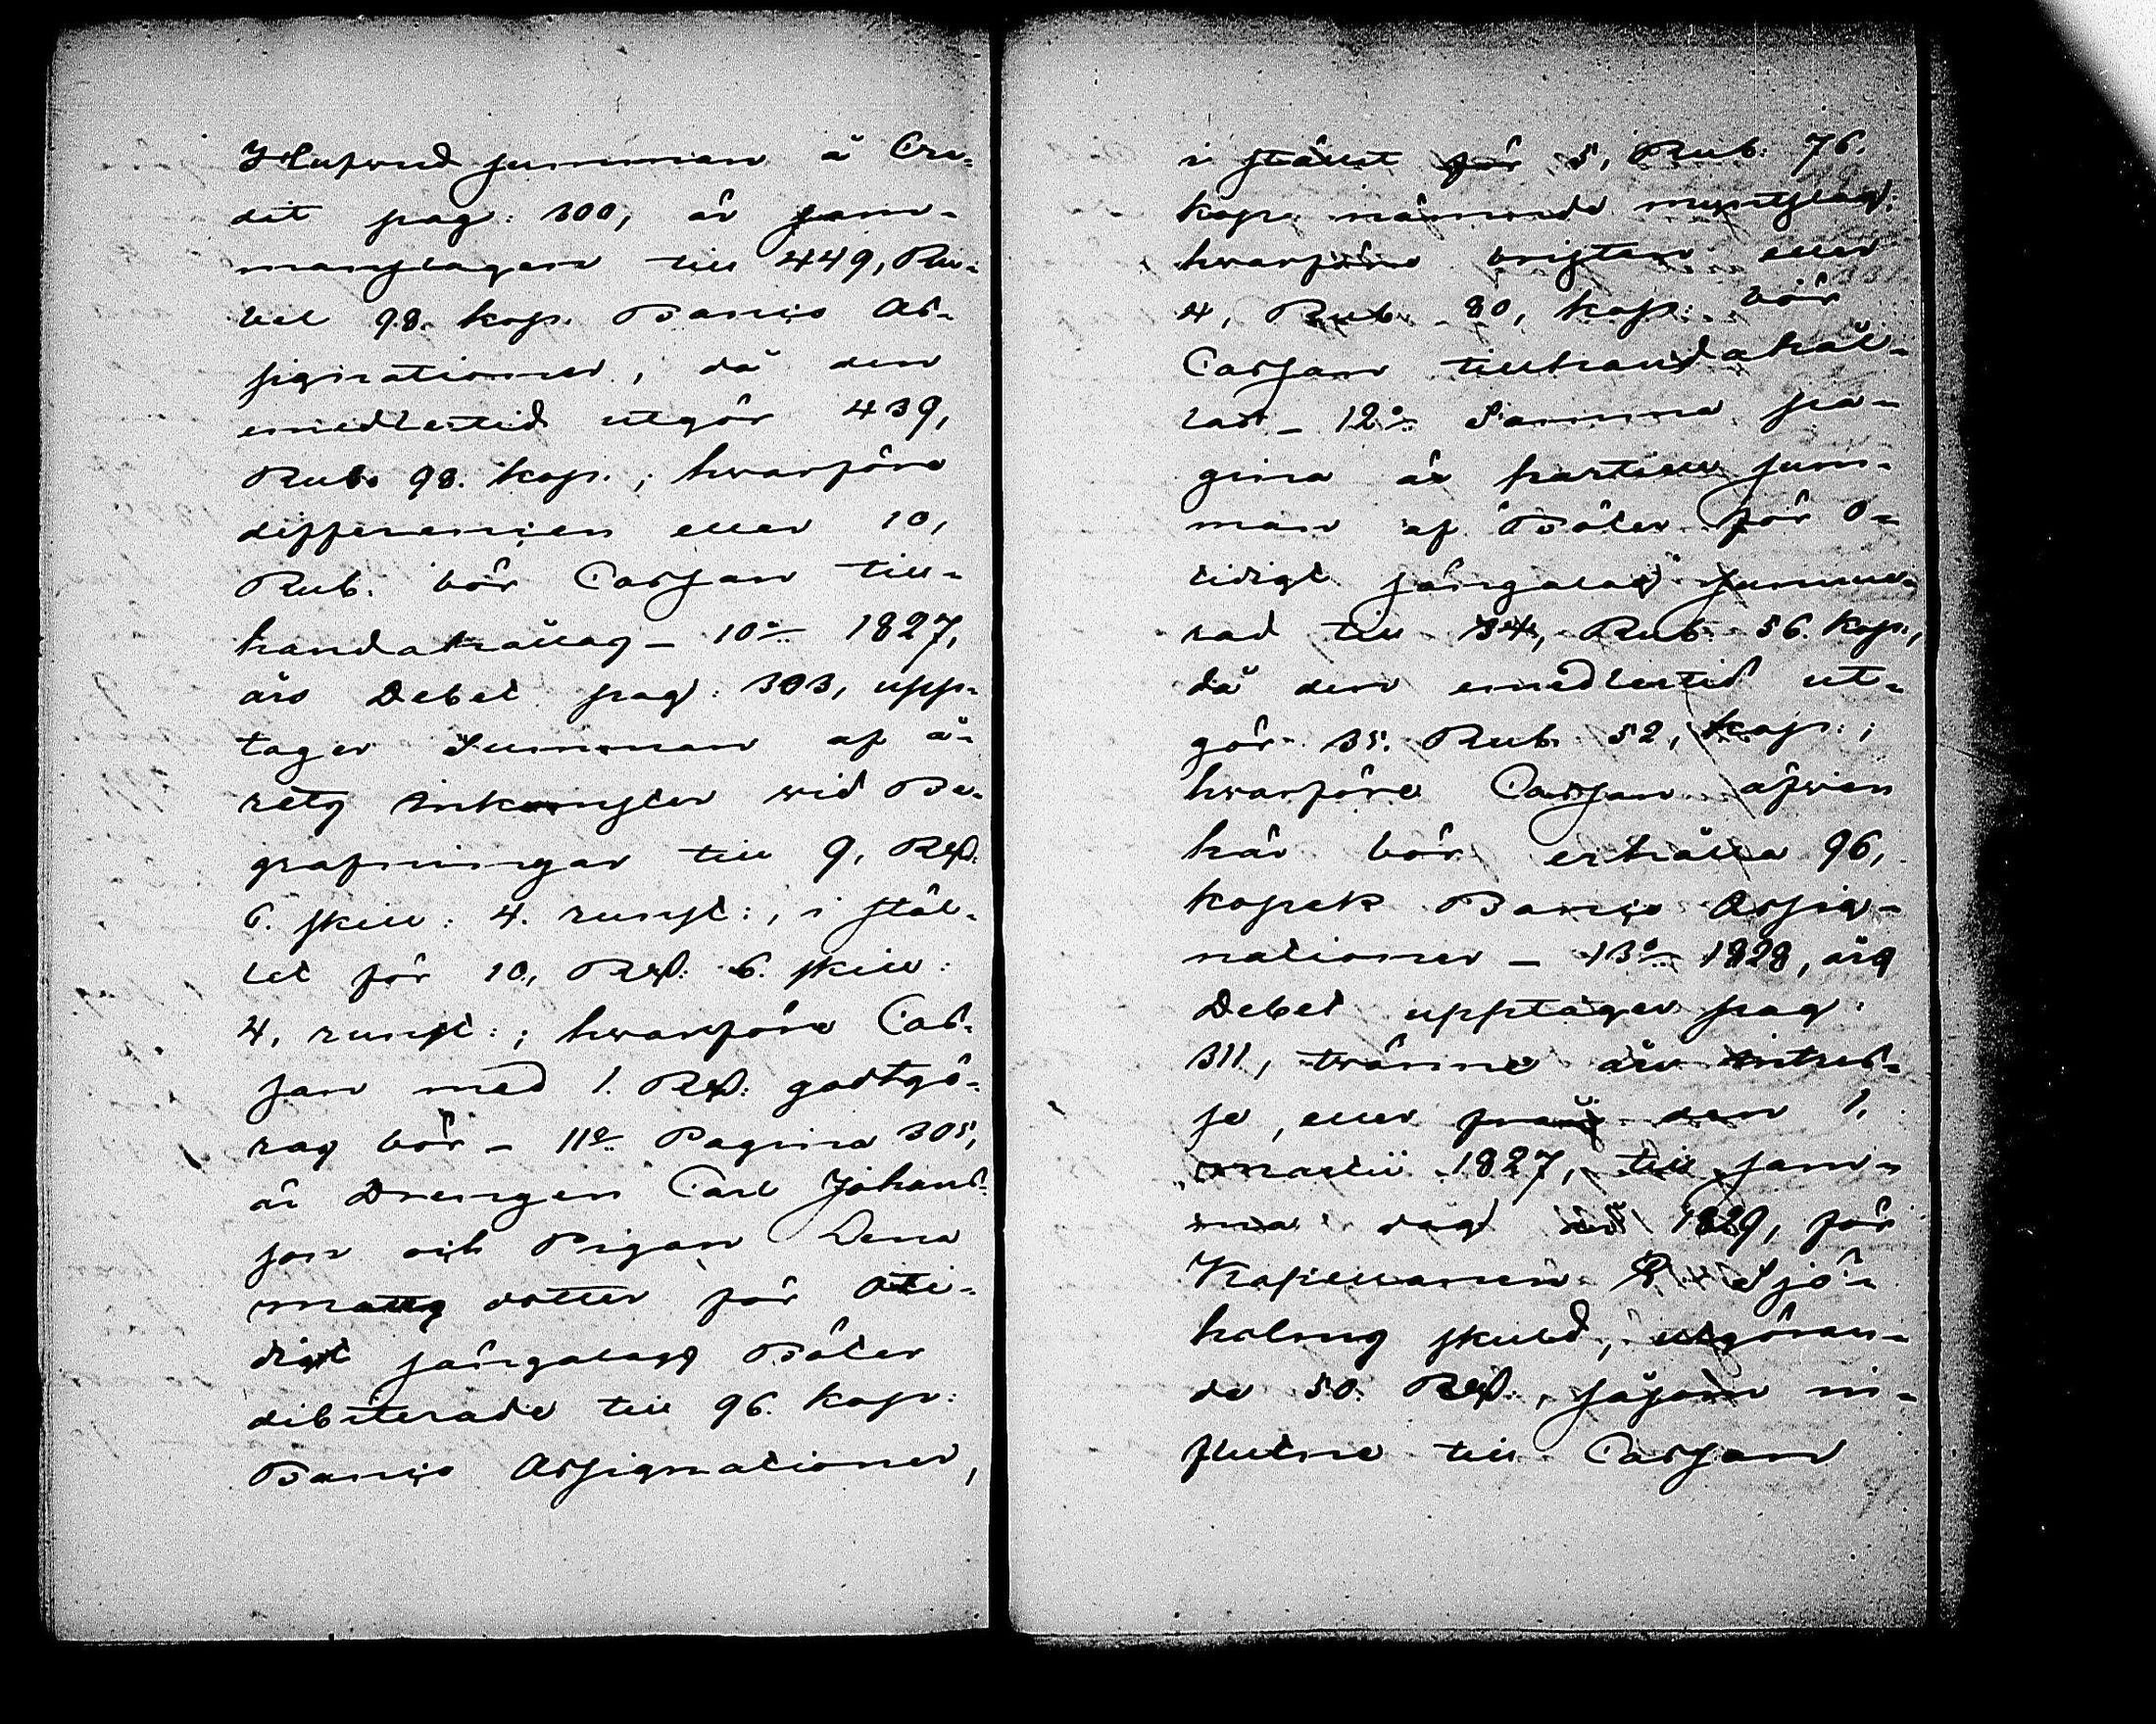 Hufwud summan å Cre-
dit pag: 300, är sam-
manslagen till 449, Ru-
bel 98. kop. Banco As-
signationer, då den
emedlertid utgör 439,
Rub. 98. kop.; hwarföre
differencen eller 10,
Rub. bör Cassan till-
handahållas – 10:o 1827,
års Debet pag: 303, upp-
tager Summan af å-
rets inkomster wid Be-
grafningar till 9, Rd:
6. skill: 4. runst:, i stäl-
let för 10, Rd: 6. skill:
4, runst:; hwarföre Cas-
san med 1. Rd: godtgö-
ras bör – 11:o Pagina 305,
är Drengen Carl Johans-
son och Pigan Lena
Matts dotter för oti-
digt sängalag Böter
debiterade till 96. kop:
Banco Assignationer,
i stället för 5, Rub: 76.
kop: nämnde myntslag;
hwarföre bristen eller
4, Rub. 80, kop: bör
Cassan tillhandahål-
las – 12:o Samma pa-
gina är partielle sum-
man af Böter för o-
tidigt sängalag summe-
rad till 34, Rub. 56. kop.,
då den emedlertid ut-
gör 35. Rub. 52, kop:;
hwarföre Cassan äfwen
här bör erhålla 96,
kopek Banco Assig-
nationer – 13:o 1828, års
Debet upptager pag:
311, twänne års intres-
se, eller från den 1.
Martii 1827, till sam-
ma dag 1829, för
Kapellanen Sjö-
holms skuld, utgöran-
de 50. Rd:, såsom in-
flutne till Cassan